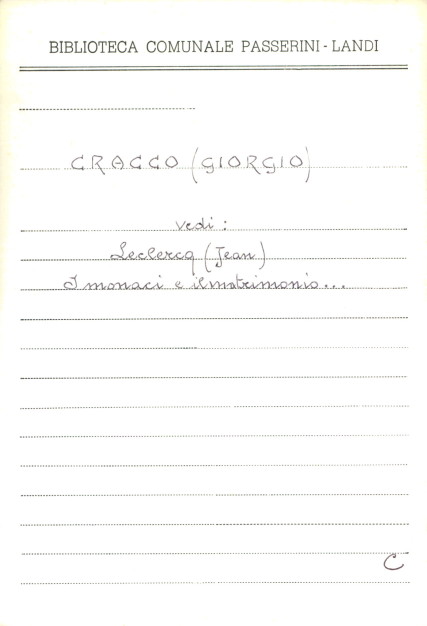 BIBLIOTECA COMUNALE PASSERINI-LANDI
CRACCO (GIORGIO)
vedi:
Leclercq (Jean)
I monaci e il matrimonio...
C